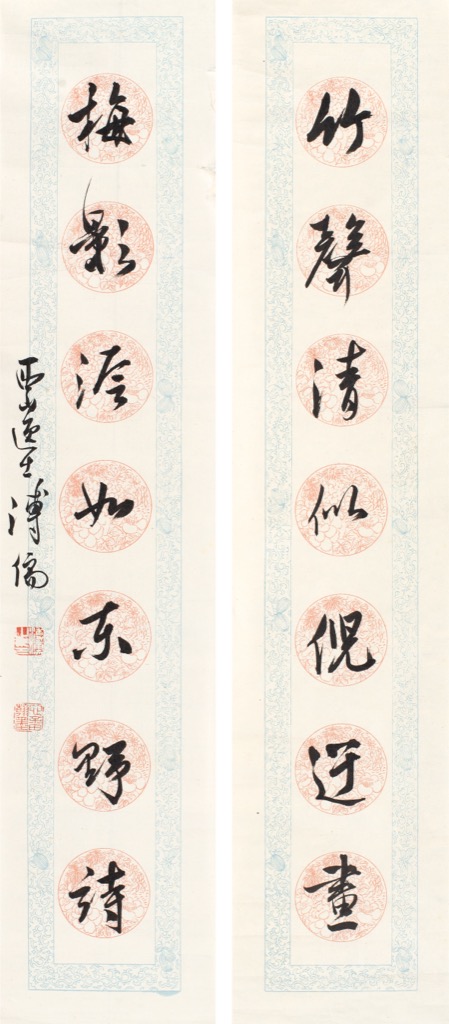 竹聲清似倪迂畫
梅影澹如東野詩
西山逸士溥儒